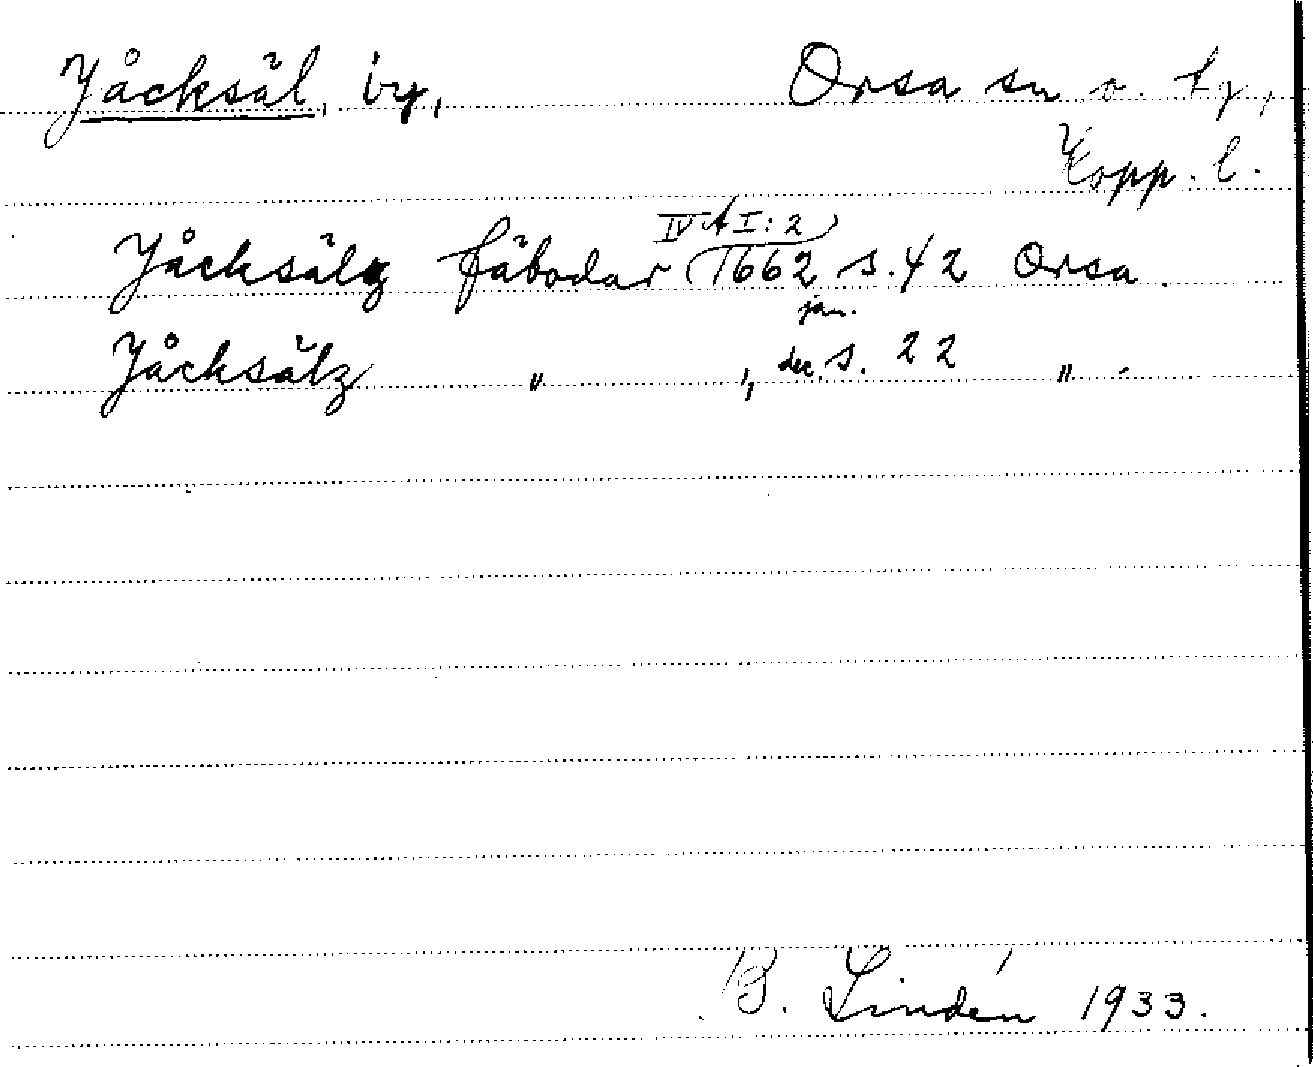 Jåcksäl, by, Orsa sn o. tg,
Kopp. l.
IV A I: 2
Jåcksälz fäbodar 1662 s. 42 Orsa.
jan.
Jåcksälz " ", dec. s. 22 ".
B. Lindén 1933.